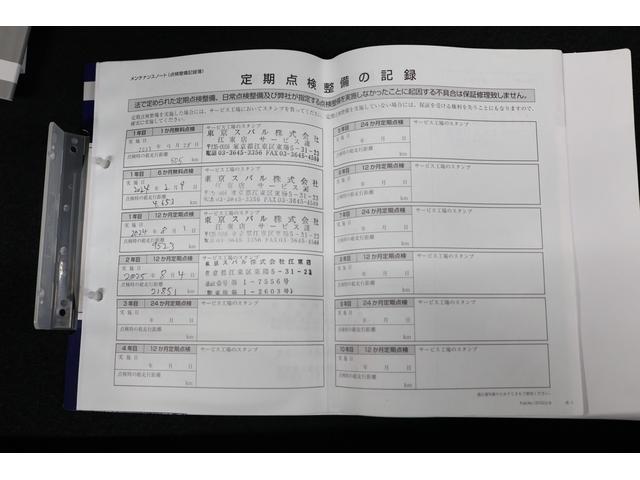 メンテナンスノート(点検整備記録簿)
定期点検整備の記録
法で定められた定期点検整備、日常点検整備及び弊社が指定する点検整備を実施しなかったことに起因する不具合は保証修理致しません。
定期点検整備を実施した場合には、サービス工場においてスタンプを貰ってください。
1年目 1か月無料点検 サービス工場のスタンプ
実施日
点検時の総走行距離
505 km
東京スバル株式会社
江東店 サービス課
東京都江東区東陽5-31-23
電話03-3645-3356 FAX03-3645-4589
1年目 6か月無料点検 サービス工場のスタンプ
実施日
2024年2月4日
点検時の総走行距離
4653 km
東京スバル株式会社
江東店 サービス課
東京都江東区東陽5-31-23
電話03-3645-3356 FAX03-3645-4589
1年目 12か月定期点検 サービス工場のスタンプ
実施日
2024年8月
点検時の総走行距離
9523 km
東京スバル株式会社
江東店 サービス課
東京都江東区東陽5-31-23
電話03-3645-3356 FAX03-3645-4589
2年目 12か月定期点検 サービス工場のスタンプ
実施日
2025年8月4日
点検時の総走行距離
21851 km
東京スバル株式会社江東店
東京都江東区東陽5-31-23
1-7556号
1-2603号
3年目 24か月定期点検 サービス工場のスタンプ
実施日
年 月 日
点検時の総走行距離
km
4年目 12か月定期点検 サービス工場のスタンプ
実施日
年 月 日
点検時の総走行距離
km
24か月定期点検 サービス工場のスタンプ
実施日
年 月 日
点検時の総走行距離
km
12か月定期点検 サービス工場のスタンプ
実施日
年 月 日
点検時の総走行距離
km
24か月定期点検 サービス工場のスタンプ
実施日
年 月 日
点検時の総走行距離
km
12か月定期点検 サービス工場のスタンプ
実施日
年 月 日
点検時の総走行距離
km
24か月定期点検 サービス工場のスタンプ
実施日
年 月 日
点検時の総走行距離
km
10年目 12か月定期点検 サービス工場のスタンプ
実施日
年 月 日
点検時の総走行距離
km